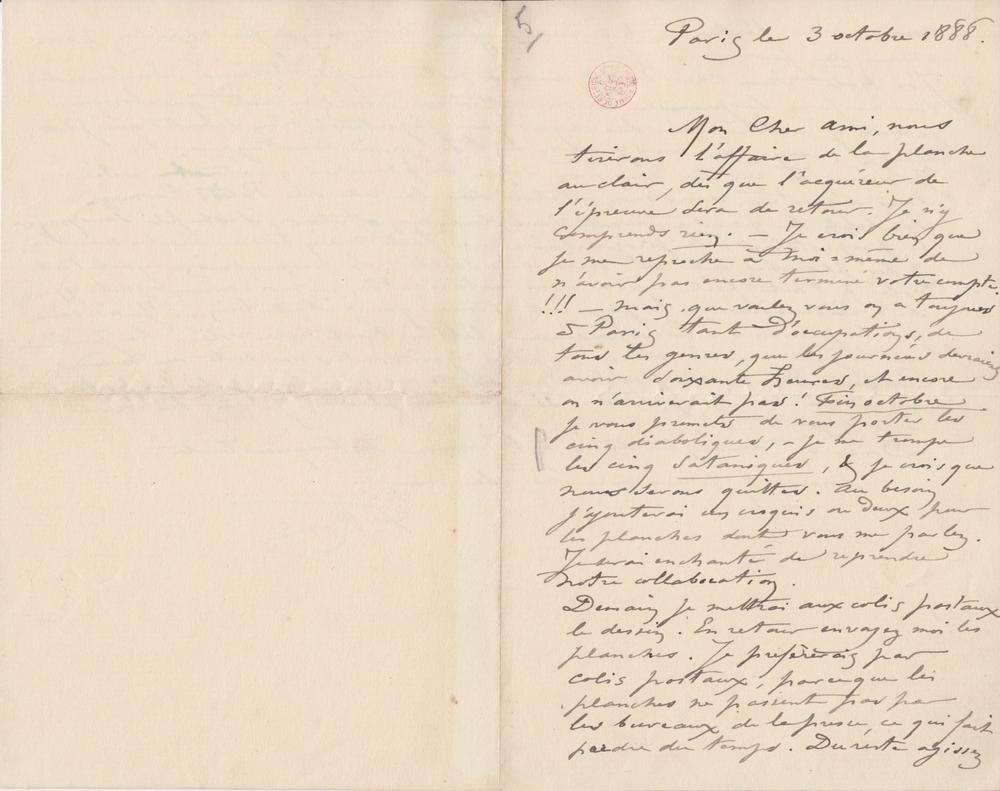 5/
Paris le 3 octobre 1888.
Mon Cher ami, nous
tirerons l'affaire de la planche
au clair, dès que l'acquéreur de
l'épreuve sera de retour. Je n'y
comprends rien. — Je crois bien que
je me reproche à moi-même de
n'avoir pas encore terminé votre compte.
!!! — mais que voulez vous on a toujours
à Paris tant d'occupations, de
tous les genres, que les journées devraient
avoir soixante heures, et encore
on n'arriverait pas! Fin octobre
je vous promets de vous porter les
cinq diaboliques, – je me trompe
les cinq sataniques, & je crois que
nous serons quittes. Au besoin
j'ajouterai un croquis ou deux pour
les planches dont vous me parlez.
Je serai enchanté de reprendre
notre collaboration.
Demain je mettrai aux colis postaux
le dessin. En retour envoyez moi les
planches. Je préfèrerais par
colis postaux, parceque les
planches ne passent pas par
les bureaux de la presse, ce qui fait
perdre du temps. Du reste agissez